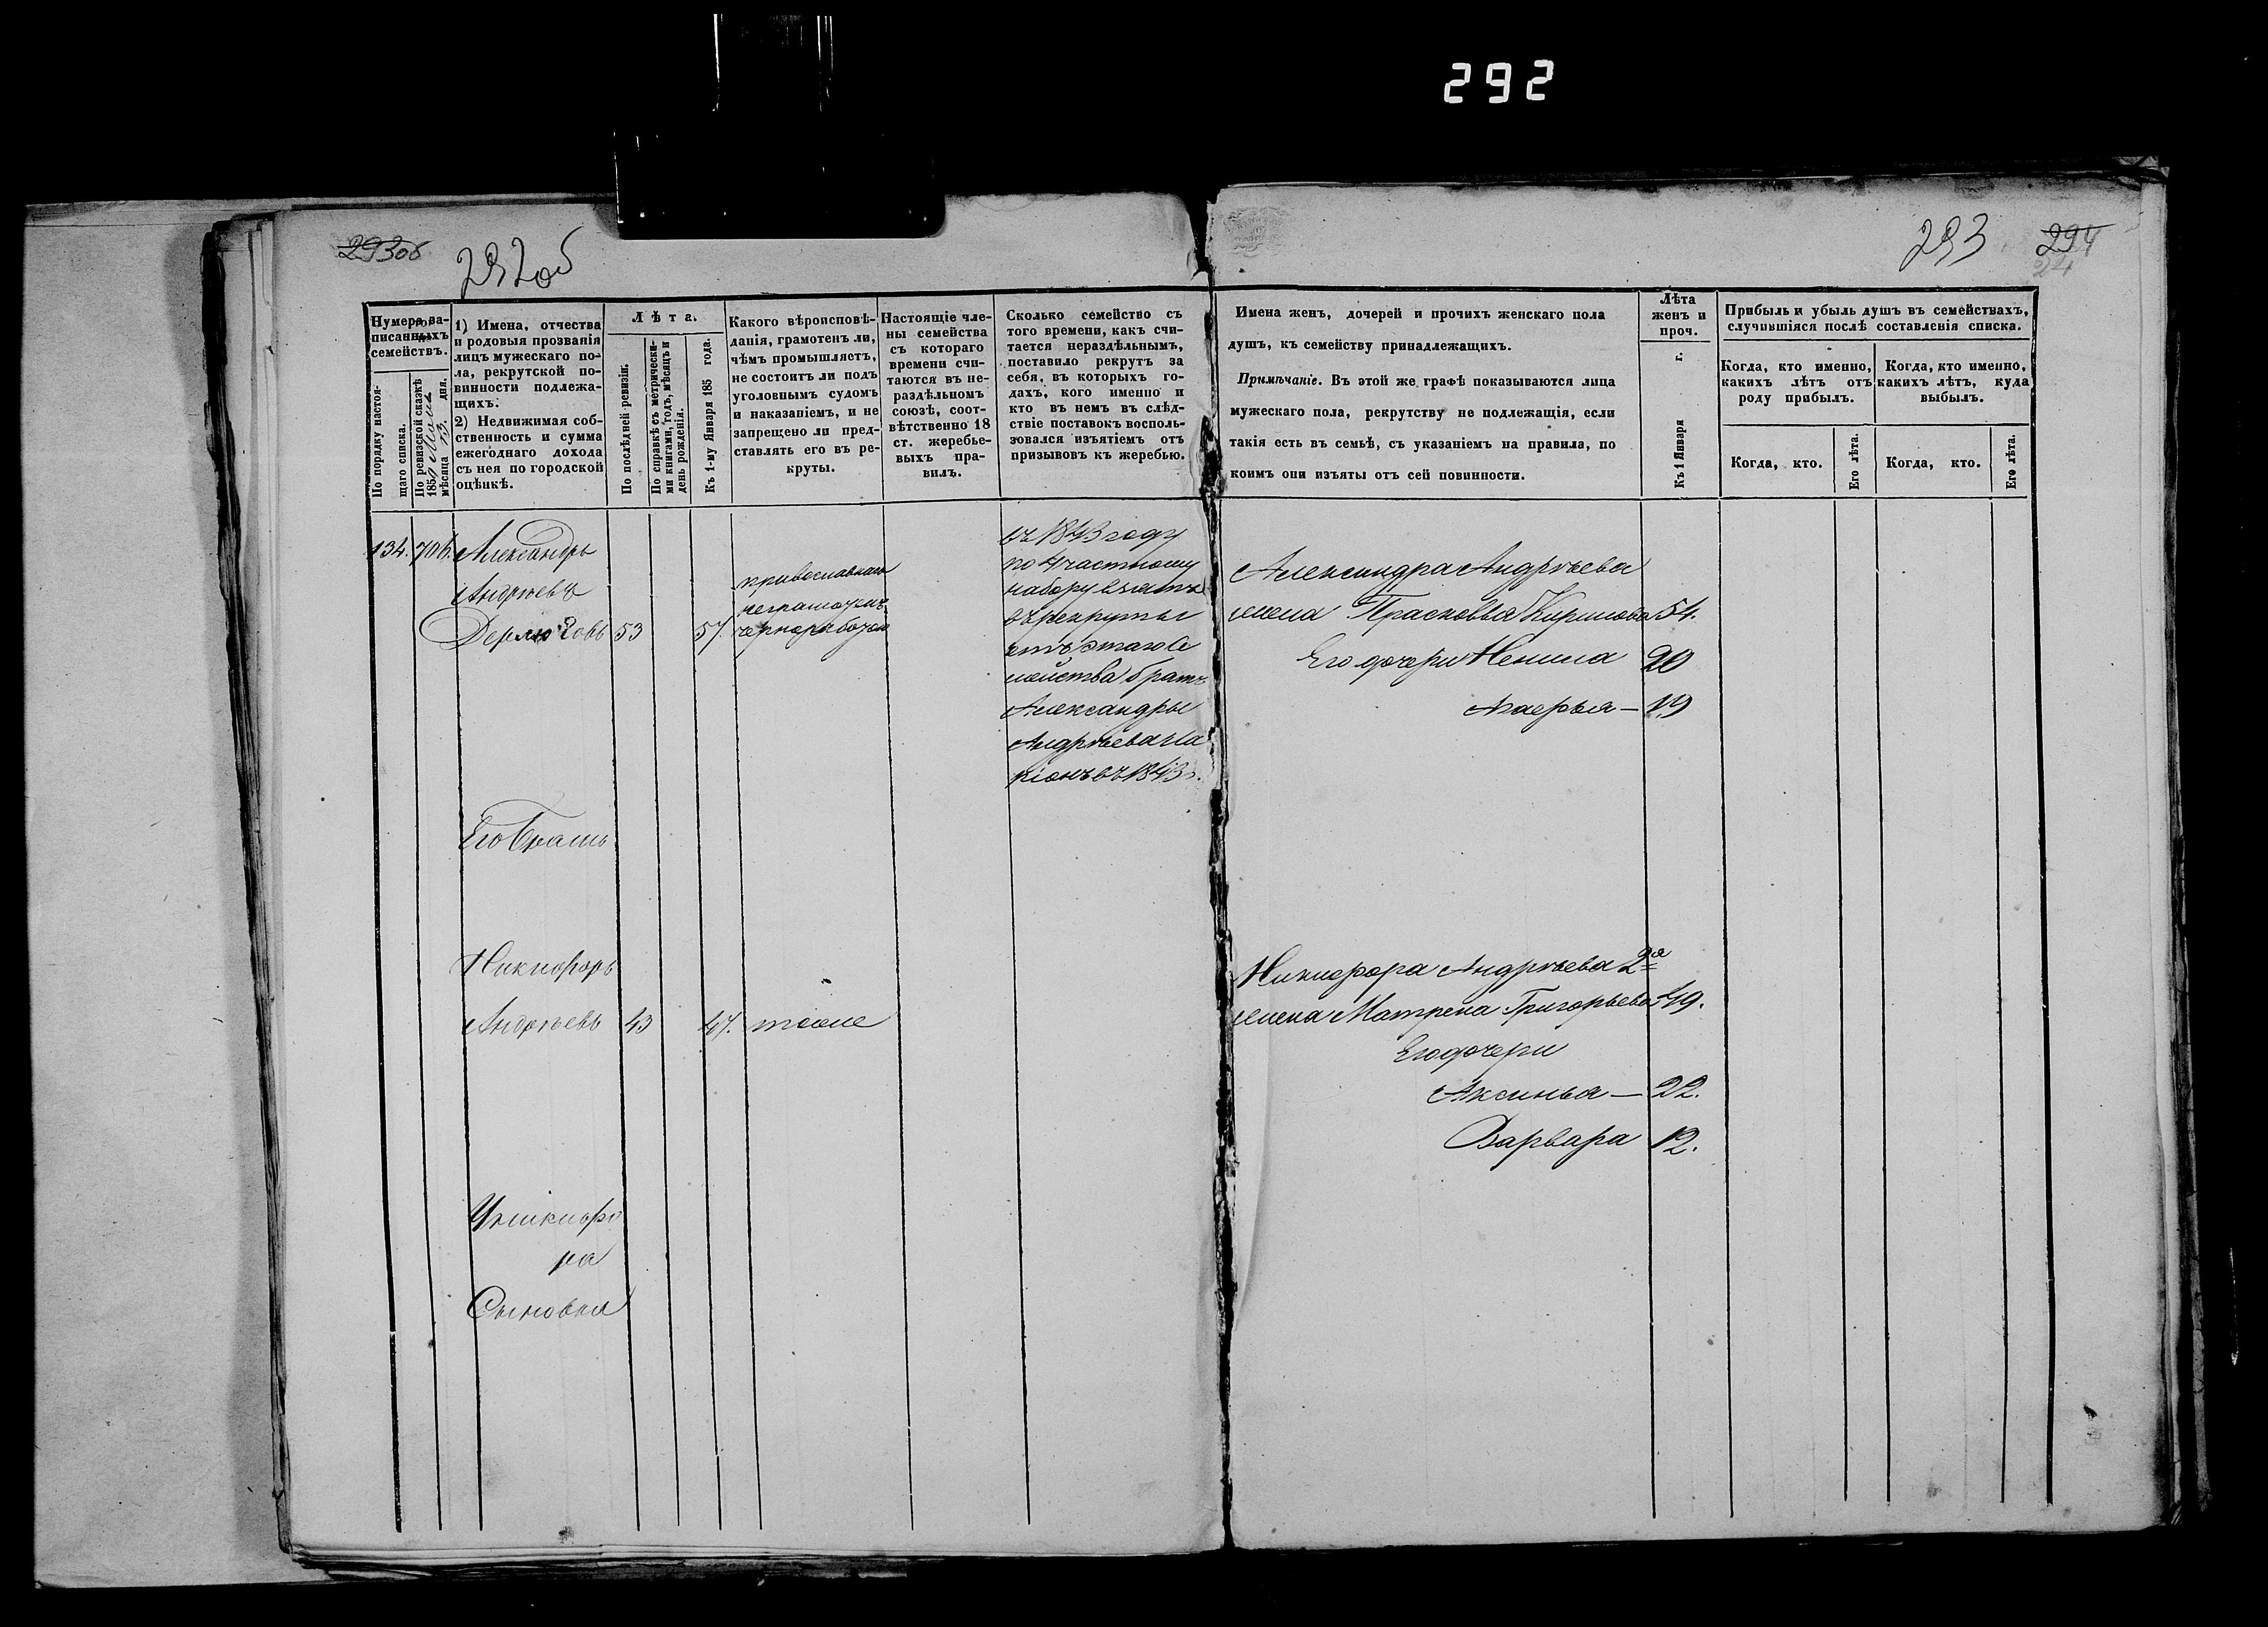 292
293об
292об
293
294
24
Нумера за-
писанныхъ
семействъ.
По порядку настоя-
щаго списка.
По ревизской сказкѣ
185
мѣсяца 13. дня.
1) Имена, отчества
и родовыя прозванія
лицъ мужескаго по-
ла, рекрутской по-
винности подлежа-
щихъ.
2) Недвижимая соб-
ственность и сумма
ежегоднаго дохода
съ нея по городской
оцѣнкѣ.
Лѣта.
По послѣдней ревизіи.
По справкѣ съ метрически-
ми книгами, годъ, мѣсяцъ и
день рожденія.
Къ 1-му Января 185 года.
Какого вѣроисповѣ-
данія, грамотенъ ли,
чѣмъ промышляетъ,
не состоитъ ли подъ
уголовнымъ судомъ
и наказаніемъ, и не
запрещено ли пред-
ставлять его въ ре-
круты.
Настоящіе чле-
ны семейства
съ котораго
времени счи-
таются въ не-
раздѣльномъ
союзѣ, соот-
вѣтственно 18
ст. жеребье-
выхъ пра-
вилъ.
Сколько семейство съ
того времени, какъ счи-
тается нераздѣльнымъ,
поставило рекрутъ за
себя, въ которыхъ го-
дахъ, кого именно и
кто въ немъ въ слѣд-
ствіе поставокъ восполь-
зовался изъятіемъ отъ
призывовъ къ жеребью.
Имена женъ, дочерей и прочихъ женскаго пола
душъ, къ семейству принадлежащихъ.
Примѣчаніе. Въ этой же графѣ показываются лица
мужескаго пола, рекрутству не подлежащія, если
такія есть въ семьѣ, съ указаніемъ на правила, по
коимъ они изъяты отъ сей повинности.
Лѣта
женъ и
проч.
Къ 1 Января г.
Прибыль и убыль душъ въ семействахъ,
случившіяся послѣ составленія списка.
Когда, кто именно,
какихъ лѣтъ отъ
роду прибылъ.
Когда, кто именно,
какихъ лѣтъ, куда
выбылъ.
Когда, кто.
Его лѣта.
Когда, кто.
Его лѣта.
134. 706. Александръ
Андреевъ
53 57.
православнаго
неграмотенъ
чернорабочій
въ 1843 году
по 4 частному
набору взятъ
въ рекруты
отъ этаго Се
мейства братъ
Александры
Андрѣева Ила
ріонъ въ 1843 г.
Александра Андрѣева
жена Прасковья 54.
Его дочери Ненила 20
19
Его Братъ
Никифоръ
Андрѣевъ 43 47. тоже
Никифора Андрѣева 2я
жена Матрена Григорьева 49.
Его дочери
Аксинья — 22.
Варвара 12.
У Никифо
ра
Сыновья